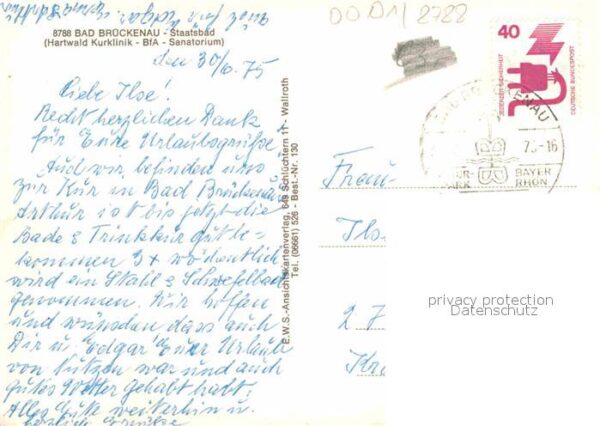 8788 BAD BRÜCKENAU - Staatsbad
(Hartwald Kurklinik - BfA - Sanatorium)
den 30/6. 75
Liebe Ilse!
Recht herzlichen Dank
für Eure Urlaubsgrüße
Auch wir befinden uns
zur Kur in Bad Brückenau
Arthur ist bis jetzt die
Bade & Trinkkur gut be-
kommen 3x wöchentlich
wird ein Stahl & Schwefelbad
genommen. Wir hoffen
und wünschen dass auch
Dir u. Edgar Euer Urlaub
von Nutzen war und auch
gutes Wetter gehabt habt.
Alles Gute weiterhin u.
herzliche Grüsse
E.W.S.-Ansichtskartenverlag, 649 Schlüchtern 11 - Wallroth
Tel. (06661) 526 - Best.-Nr. 130
DO D1/8788
40
JEDERZEIT SICHERHEIT
DEUTSCHE BUNDESPOST
75-16
BAYER
RHÖN
Frau
Ils
2
privacy protection
Datenschutz